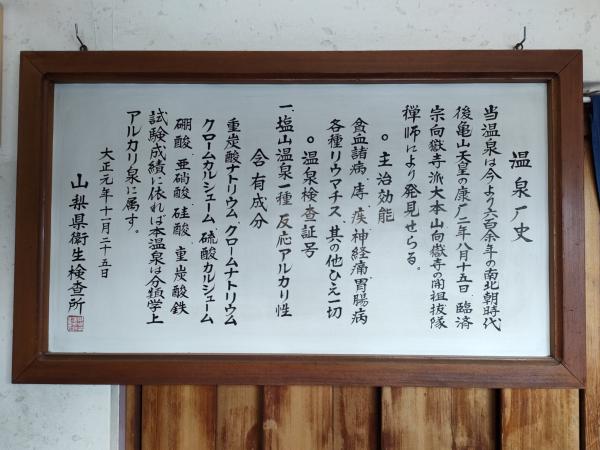 温泉厂史
当温泉は今より六百余年の南北朝時代
後亀山天皇の康厂二年八月十五日、臨済
宗向嶽寺派大本山向嶽寺の開祖抜隊
禅師により発見せらる。
○主治効能
貧血諸病、痔、疾、神経痛、胃腸病
各種リウマチス、其の他ひえ一切
○温泉検査証号
一、塩山温泉一種 反応アルカリ性
含有成分
重炭酸ナトリウム、クロームナトリウム
クロームカルシューム 硫酸カルシューム
硼酸 亜硝酸 硅酸、重炭酸鉄
試験成績に依れば本温泉は分類学上
アルカリ泉に属す。
大正元年十一月二十五日
山梨県衛生検査所